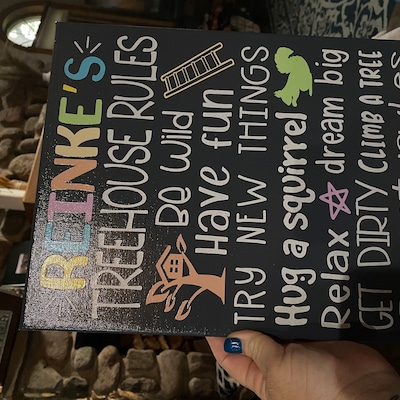 REINKE'S
TREEHOUSE RULES
Be wild
Have fun
TRY NEW THINGS
Hug a squirrel
Relax dream big
GET DIRTY CLIMB A TREE